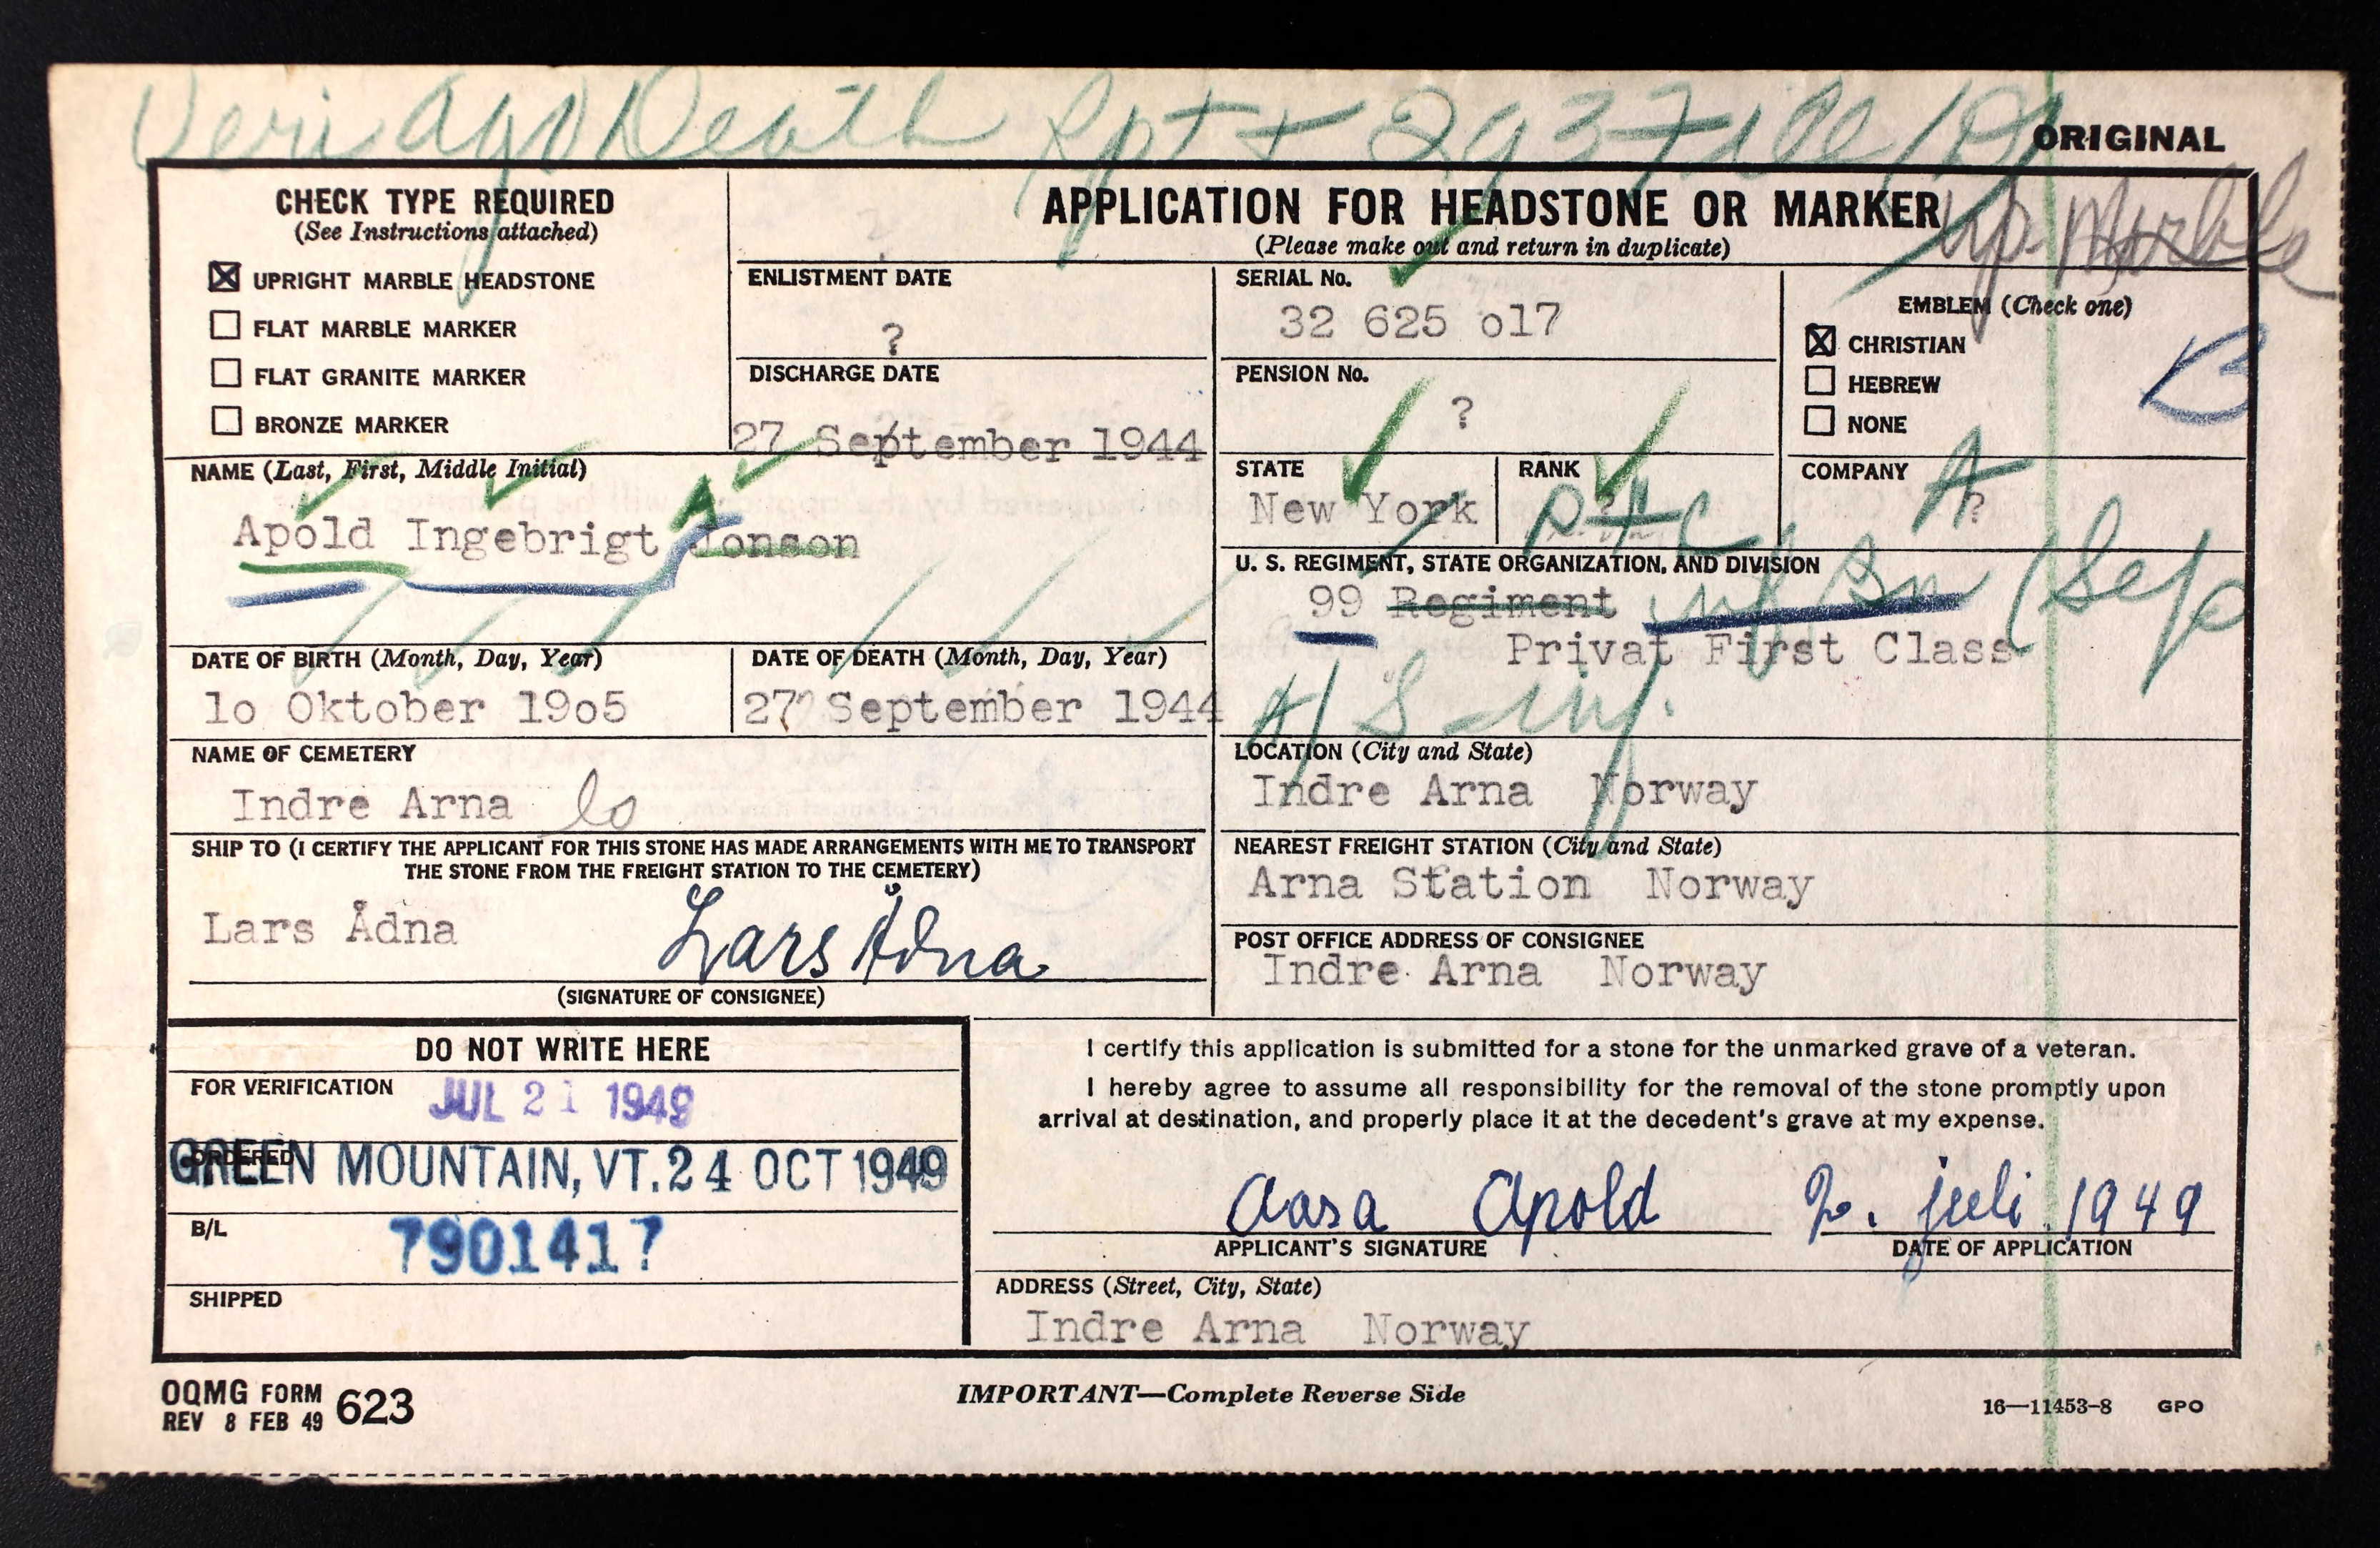 Veri Ago Death Rpt +
ORIGINAL
CHECK TYPE REQUIRED
(See Instructions attached)
☒ UPRIGHT MARBLE HEADSTONE
☐ FLAT MARBLE MARKER
☐ FLAT GRANITE MARKER
☐ BRONZE MARKER
APPLICATION FOR HEADSTONE OR MARKER
(Please make out and return in duplicate)
Up. Marble
ENLISTMENT DATE
?
DISCHARGE DATE
27 September 1944
SERIAL No.
32 625 o17
PENSION No.
?
EMBLEM (Check one)
☒ CHRISTIAN
☐ HEBREW
☐ NONE
B
NAME (Last, First, Middle Initial)
Apold Ingebrigt Jonson
A
STATE
New York
RANK
?
Pfc
COMPANY
?
A
U. S. REGIMENT, STATE ORGANIZATION, AND DIVISION
99 Regiment Inf Bn (Sep
Privat First Class
DATE OF BIRTH (Month, Day, Year)
lo Oktober 19o5
DATE OF DEATH (Month, Day, Year)
27 September 1944
NAME OF CEMETERY
Indre Arna
LOCATION (City and State)
Indre Arna Norway
SHIP TO (I CERTIFY THE APPLICANT FOR THIS STONE HAS MADE ARRANGEMENTS WITH ME TO TRANSPORT
THE STONE FROM THE FREIGHT STATION TO THE CEMETERY)
Lars Ådna Lars Ådna
(SIGNATURE OF CONSIGNEE)
NEAREST FREIGHT STATION (City and State)
Arna Station Norway
POST OFFICE ADDRESS OF CONSIGNEE
Indre Arna Norway
DO NOT WRITE HERE
FOR VERIFICATION
JUL 21 1949
ORDERED
GREEN MOUNTAIN, VT. 24 OCT 1949
B/L
7901417
SHIPPED
I certify this application is submitted for a stone for the unmarked grave of a veteran.
I hereby agree to assume all responsibility for the removal of the stone promptly upon
arrival at destination, and properly place it at the decedent's grave at my expense.
Aasa Apold 2. juli 1949
APPLICANT'S SIGNATURE DATE OF APPLICATION
ADDRESS (Street, City, State)
Indre Arna Norway
OQMG FORM 623
REV 8 FEB 49
IMPORTANT—Complete Reverse Side
16—11453-8 GPO